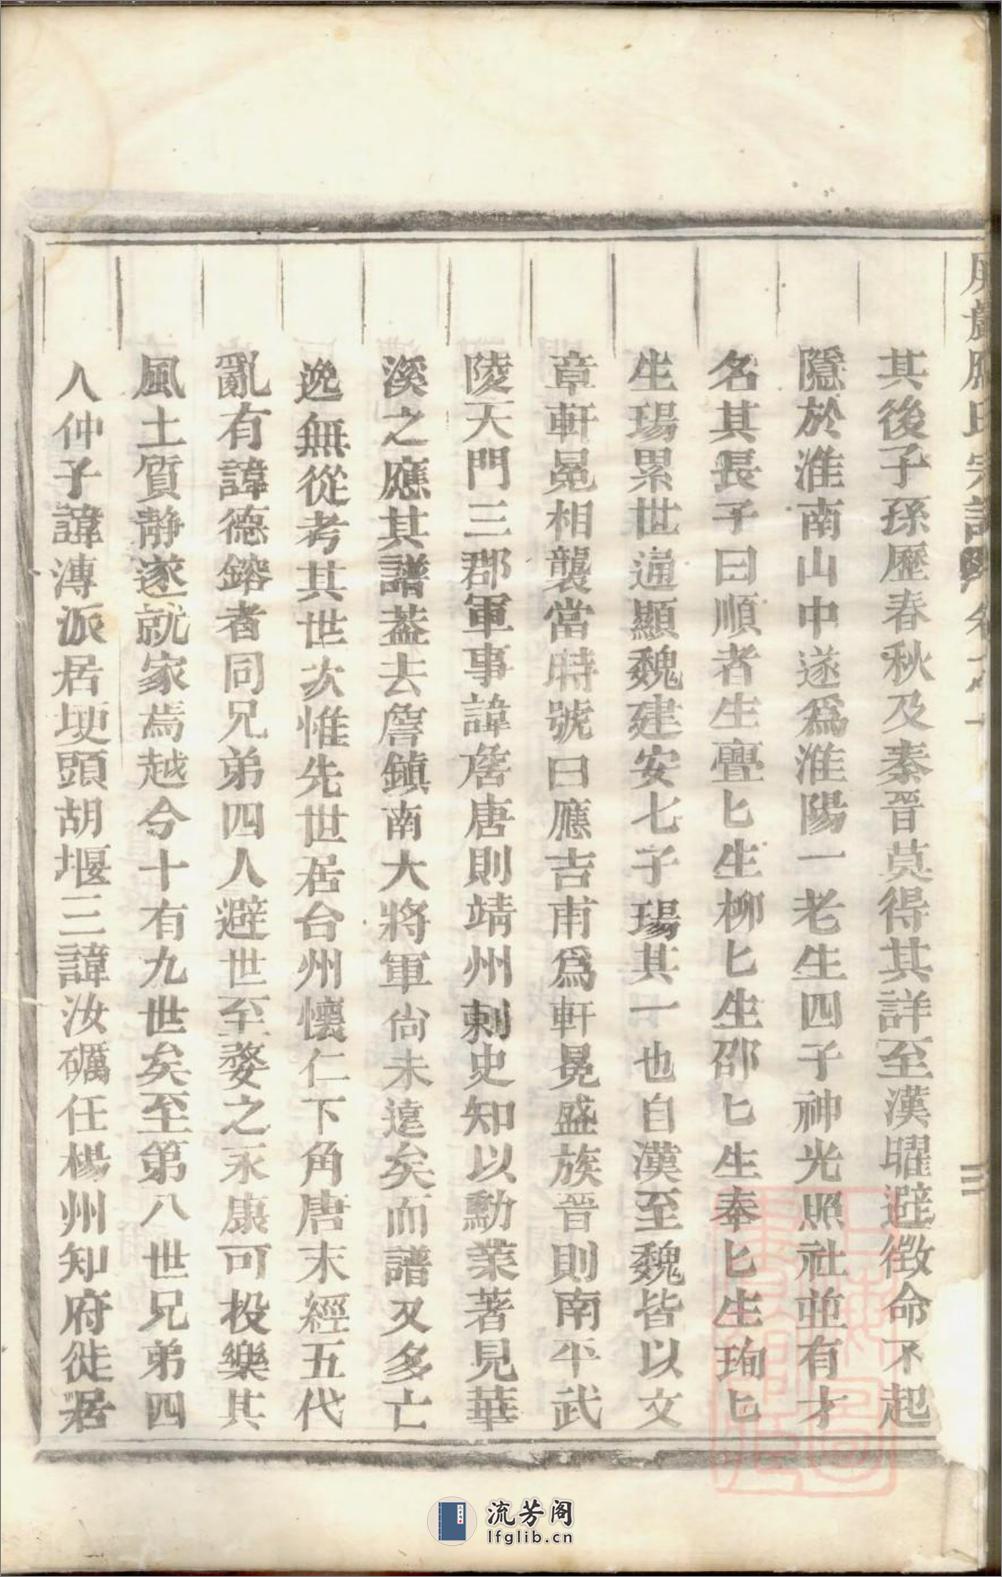 其後子孫歷春秋及秦晉莫得其詳至漢曜避徵命不起
隱於淮南山中遂爲淮陽一老生四子神光照社並有才
名其長子曰順者生疊匕生柳匕生邵匕生奉匕生珣匕
生瑒累世通顯魏建安七子瑒其一也自漢至魏皆以文
章軒冕相襲當時號曰應吉甫爲軒冕盛族晉則南平武
陵天門三郡軍事諱詹唐則靖州刺史知以勳業著見華
溪之應其譜葢去詹鎮南大將軍尙未遠矣而譜又多亡
逸無從考其世次惟先世居台州懷仁下角唐末經五代
亂有諱德鎔者同兄弟四人避世至婺之永康可投樂其
風土質静遂就家焉越今十有九世矣至第八世兄弟四
人仲子諱漙派居埂頭胡堰三諱汝礪任楊州知府徙居
氏宗譜 卷之 三
流芳阁
lfglib.cn